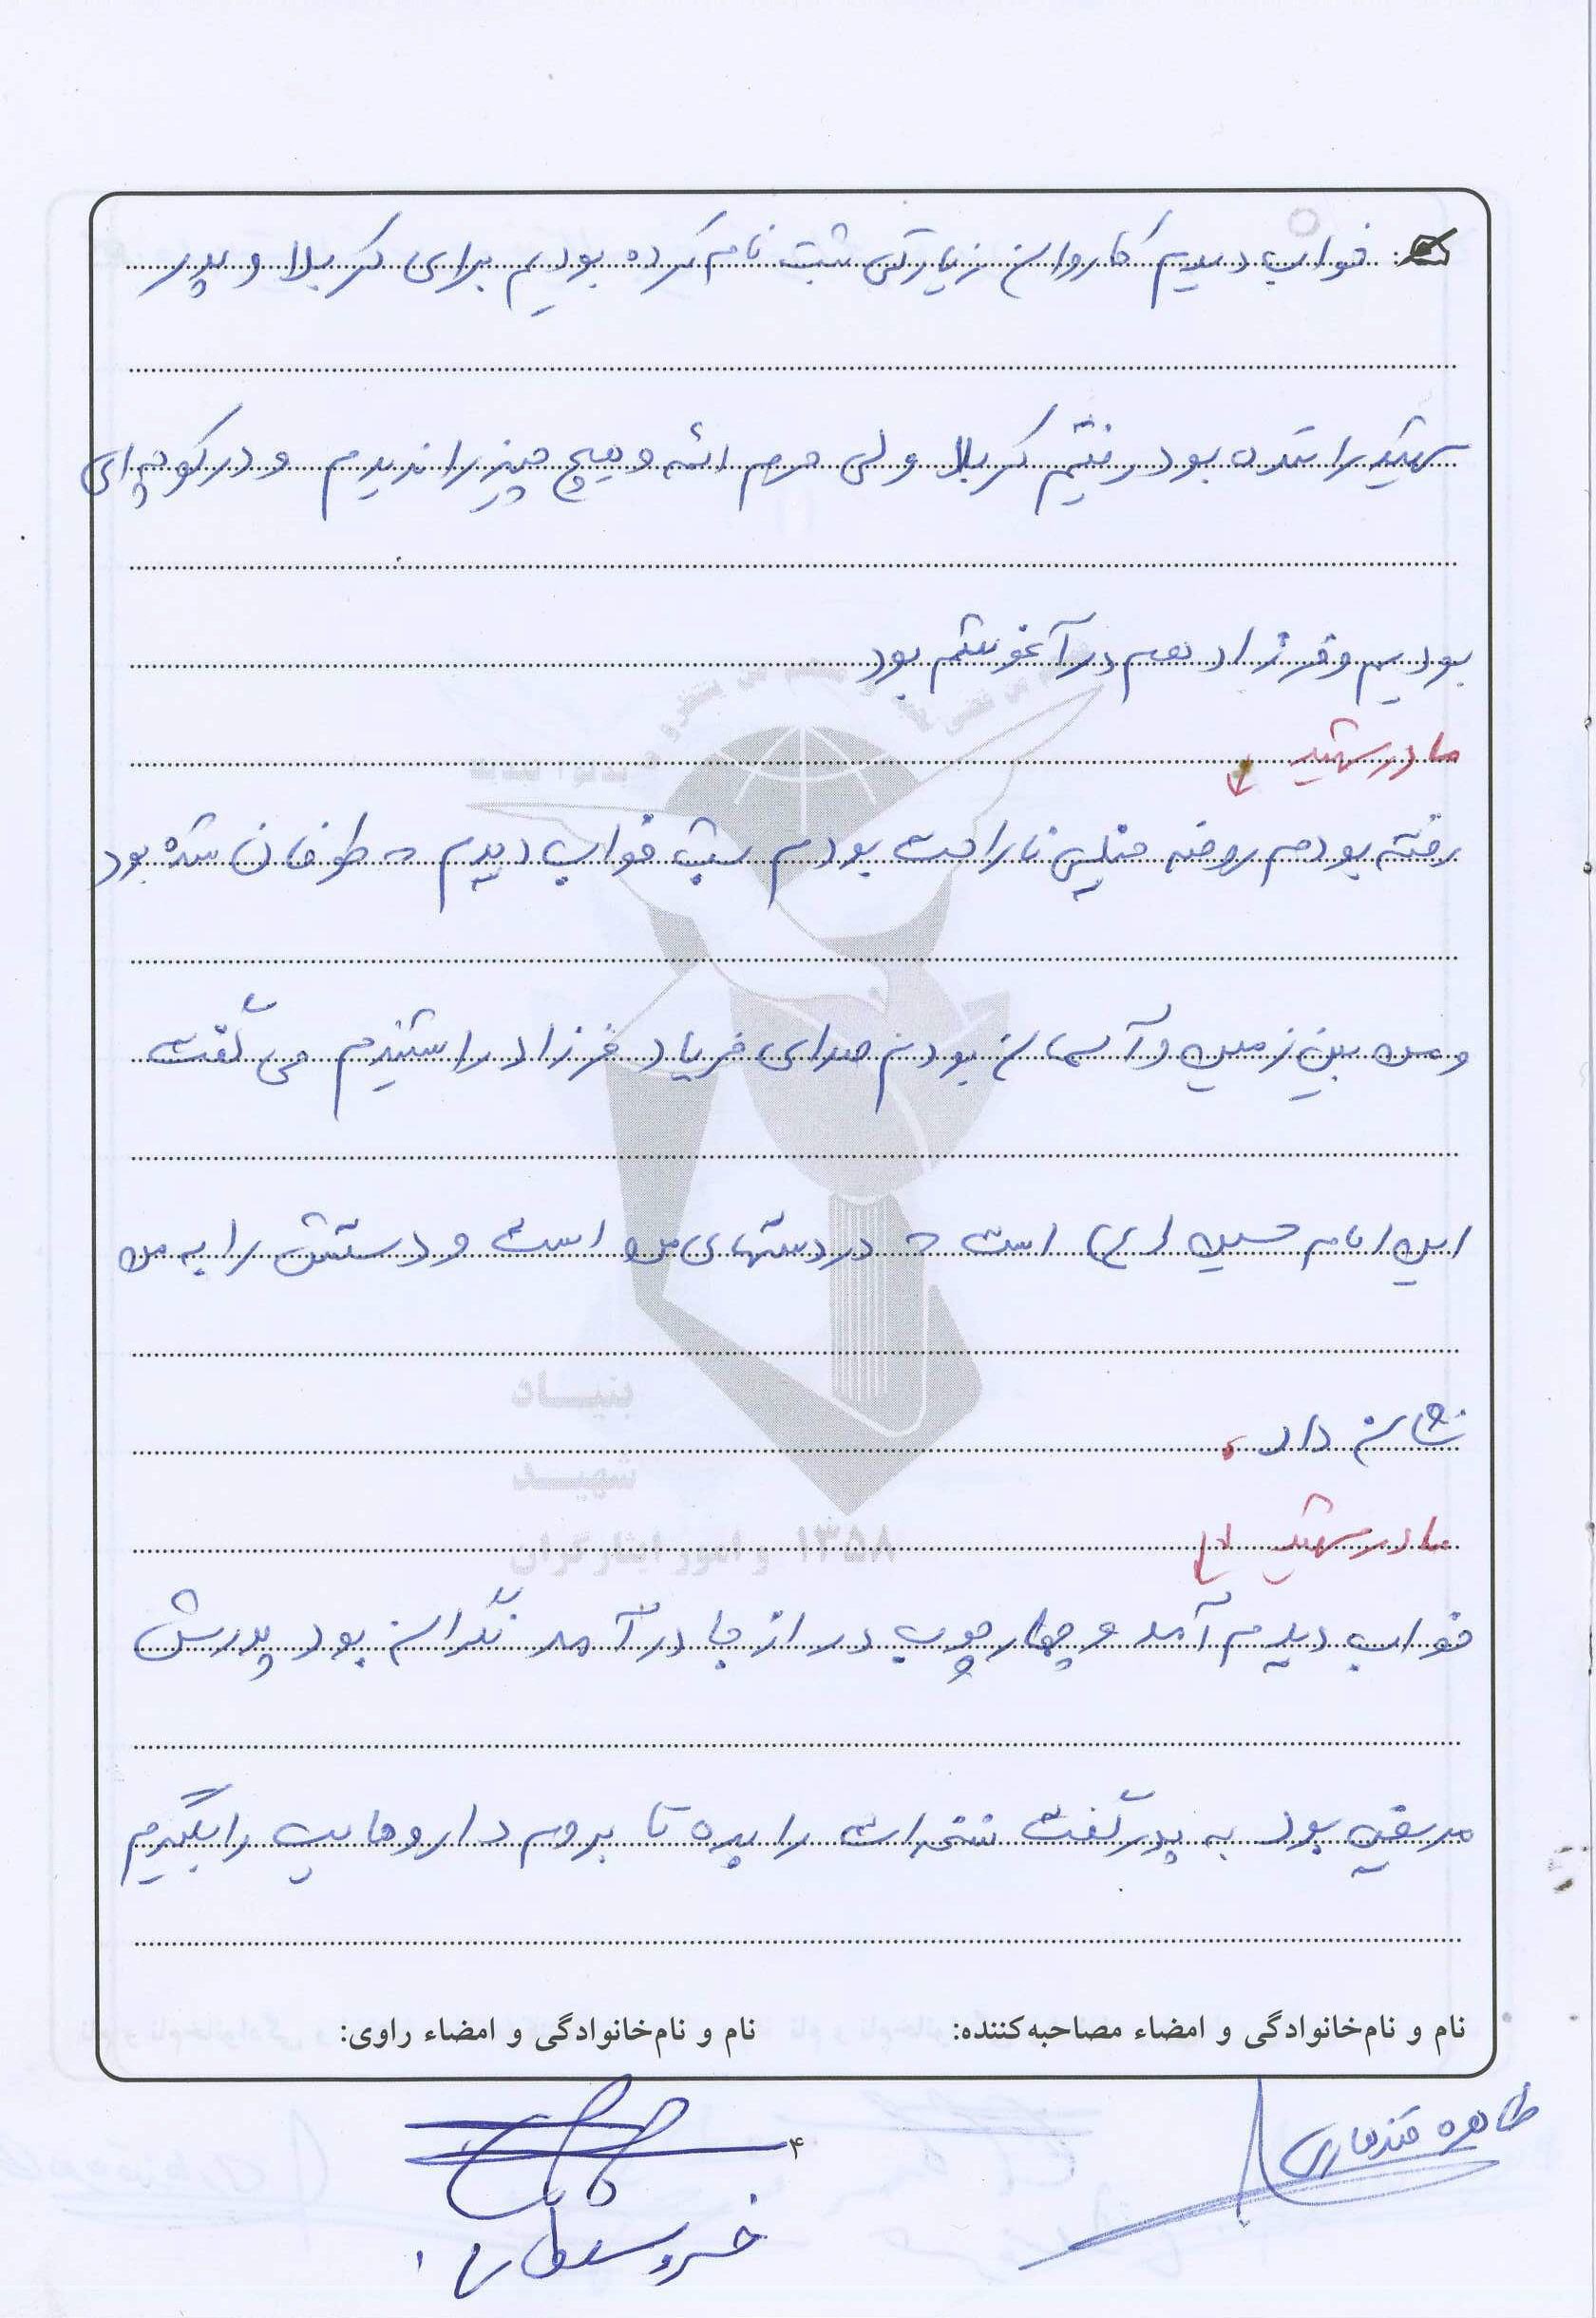 خواب دیدیم کاروان زیارتی ثبت نام کرده بودیم برای کربلا و پدر
شهید راننده بود رفتیم کربلا ولی حرم ائمه و هیچ چیز را ندیدم و در کوچه ای
بودیم و فرزاد هم در آغوشم بود
مادر شهید ↓
رفته بودم روضه خیلی ناراحت بودم شب خواب دیدم که طوفان شده بود
و من بین زمین و آسمان بودم صدای فریاد فرزاد را شنیدم می گفت
این امام حسین (ع) است که در دستهای من است و دستش را به من
نشان داد.
مادر شهید
خواب دیدم آمد و چهارچوب در از جا درآمد نگران بود پدرش
مریض بود به پدر گفت نسخه ات را بده تا بروم داروهایت را بگیرم
بنیاد
شهید
و امور ایثارگران ۱۳۵۸
نام و نام‌خانوادگی و امضاء مصاحبه‌کننده: نام و نام‌خانوادگی و امضاء راوی:
طاهره قندهاری
۴